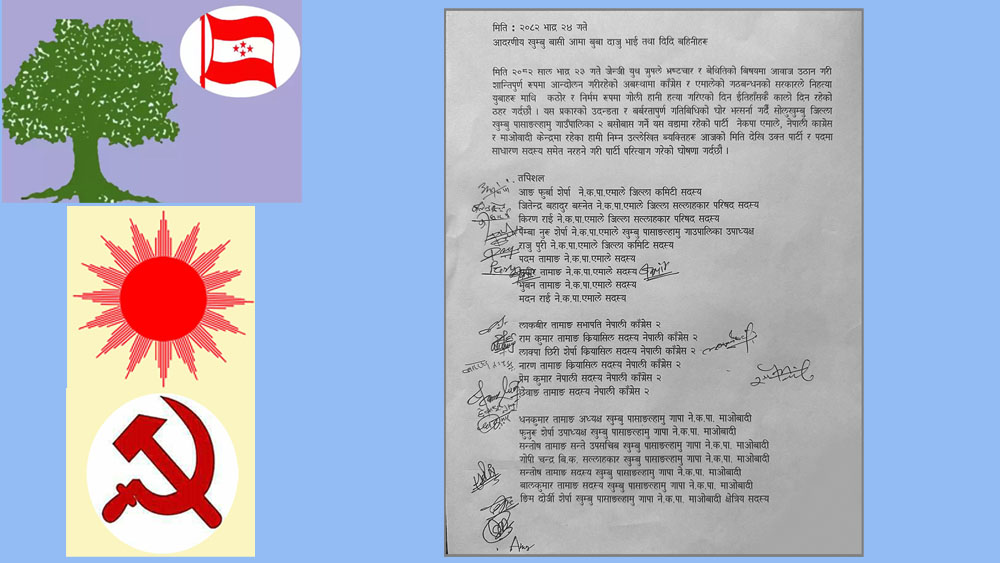 मिति : २०८२ भाद्र २४ गते
आदरणीय खुम्बु बासी आमा बुबा दाजु भाई तथा दिदि बहिनीहरू
मिति २०८२ साल भाद्र २३ गते जेन्जी युथ ग्रुपले भ्रष्टचार र बेथितिको बिषयमा आवाज उठान गरी
शान्तिपूर्ण रूपमा आन्दोलन गरीरहेको अबस्थामा काँग्रेस र एमालेको गठबन्धनको सरकारले निहत्या
युबाहरू माथि कठोर र निर्मम रूपमा गोली हानी हत्या गरिएको दिन ईतिहाँसकै कालो दिन रहेको
ठहर गर्दछौं । यस प्रकारको उदन्डता र बर्बरतापुर्ण गतिबिधिको घोर भर्त्सना गर्दै सोलुखुम्बु जिल्ला
खुम्बु पासाङल्हामु गाउँपालिका २ बसोबास गर्ने यस वडामा रहेको पार्टी नेकपा एमाले, नेपाली काग्रेस
र माओवादी केन्द्रमा रहेका हामी निम्न उल्लेखित ब्यक्तिहरू आजको मिति देखि उक्त पार्टी र पदमा
साधारण सदस्य समेत नरहने गरी पार्टी परित्याग गरेको घोषणा गर्दछौं ।
तपिशल
जाङ फुर्बा शेर्पा ने.क.पा.एमाले जिल्ला कमिटी सदस्य
जितेन्द्र बहादुर बस्नेत ने.क.पा.एमाले जिल्ला सल्लाहकार परिषद सदस्य
किरण राई ने.क.पा.एमाले जिल्ला सल्लाहकार परिषद सदस्य
पेम्बा नुरू शेर्पा ने.क.पा.एमाले खुम्बु पासाङल्हामु गाउपालिका उपाध्यक्ष
राजु पुरी ने.क.पा.एमाले जिल्ला कमिटि सदस्य
पदम तामाङ ने.क.पा.एमाले सदस्य
तामाङ ने.क.पा.एमाले सदस्य
भुबन तामाङ ने.क.पा.एमाले सदस्य
मदन राई ने.क.पा.एमाले सदस्य
लाकबीर तामाङ सभापति नेपाली काँग्रेस २
राम कुमार तामाङ क्रियासिल सदस्य नेपाली काँग्रेस २
लाक्पा छिरी शेर्पा क्रियासिल सदस्य नेपाली काँग्रेस २
नारण तामाङ क्रियासिल सदस्य नेपाली काँग्रेस २
प्रेम कुमार नेपाली सदस्य नेपाली काँग्रेस २
छेवाङ तामाङ सदस्य नेपाली काँग्रेस २
धनकुमार तामाङ अध्यक्ष खुम्बु पासाङल्हामु गापा ने.क.पा. माओबादी
फुनुरू शेर्पा उपाध्यक्ष खुम्बु पासाङल्हामु गापा ने.क.पा. माओबादी
सन्तोष तामाङ सन्ते उपसचिब खुम्बु पासाङल्हामु गापा ने.क.पा. माओबादी
गोपी चन्द्र बि.क. सल्लाहकार खुम्बु पासाङल्हामु गापा ने.क.पा. माओबादी
सन्तोष तामाङ सदस्य खुम्बु पासाङल्हामु गापा ने.क.पा. माओबादी
बालकुमार तामाङ सदस्य खुम्बु पासाङल्हामु गापा ने.क.पा. माओबादी
ङिम दोर्जी शेर्पा खुम्बु पासाङल्हामु गापा ने.क.पा. माओबादी क्षेत्रिय सदस्य